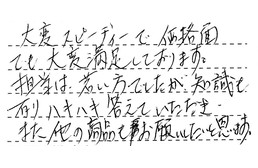 大変スピーディーで、価格面
でも大変満足しております。
担当は若い方でしたが、知識も
有りハキハキ答えていただき
また他の商品もお願いしたいと思います。